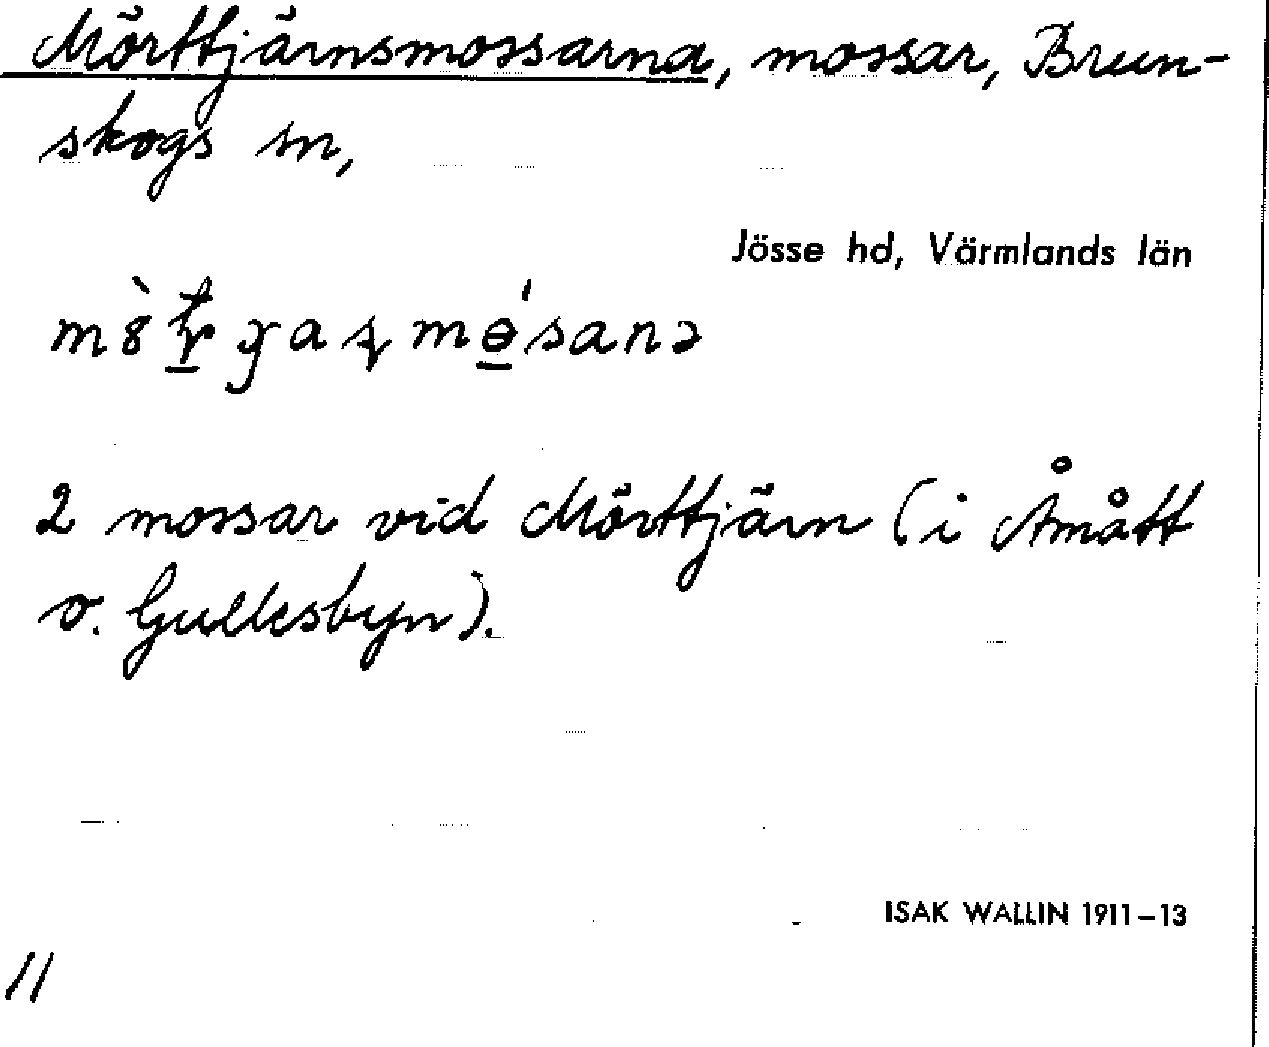 Mörttjärnsmossarna, mossar, Brun-
skogs sn,
Jösse hd, Värmlands län
2 mossar vid Mörttjärn (i Åmått
o. Gullesbyn).
ISAK WALLIN 1911–13
11